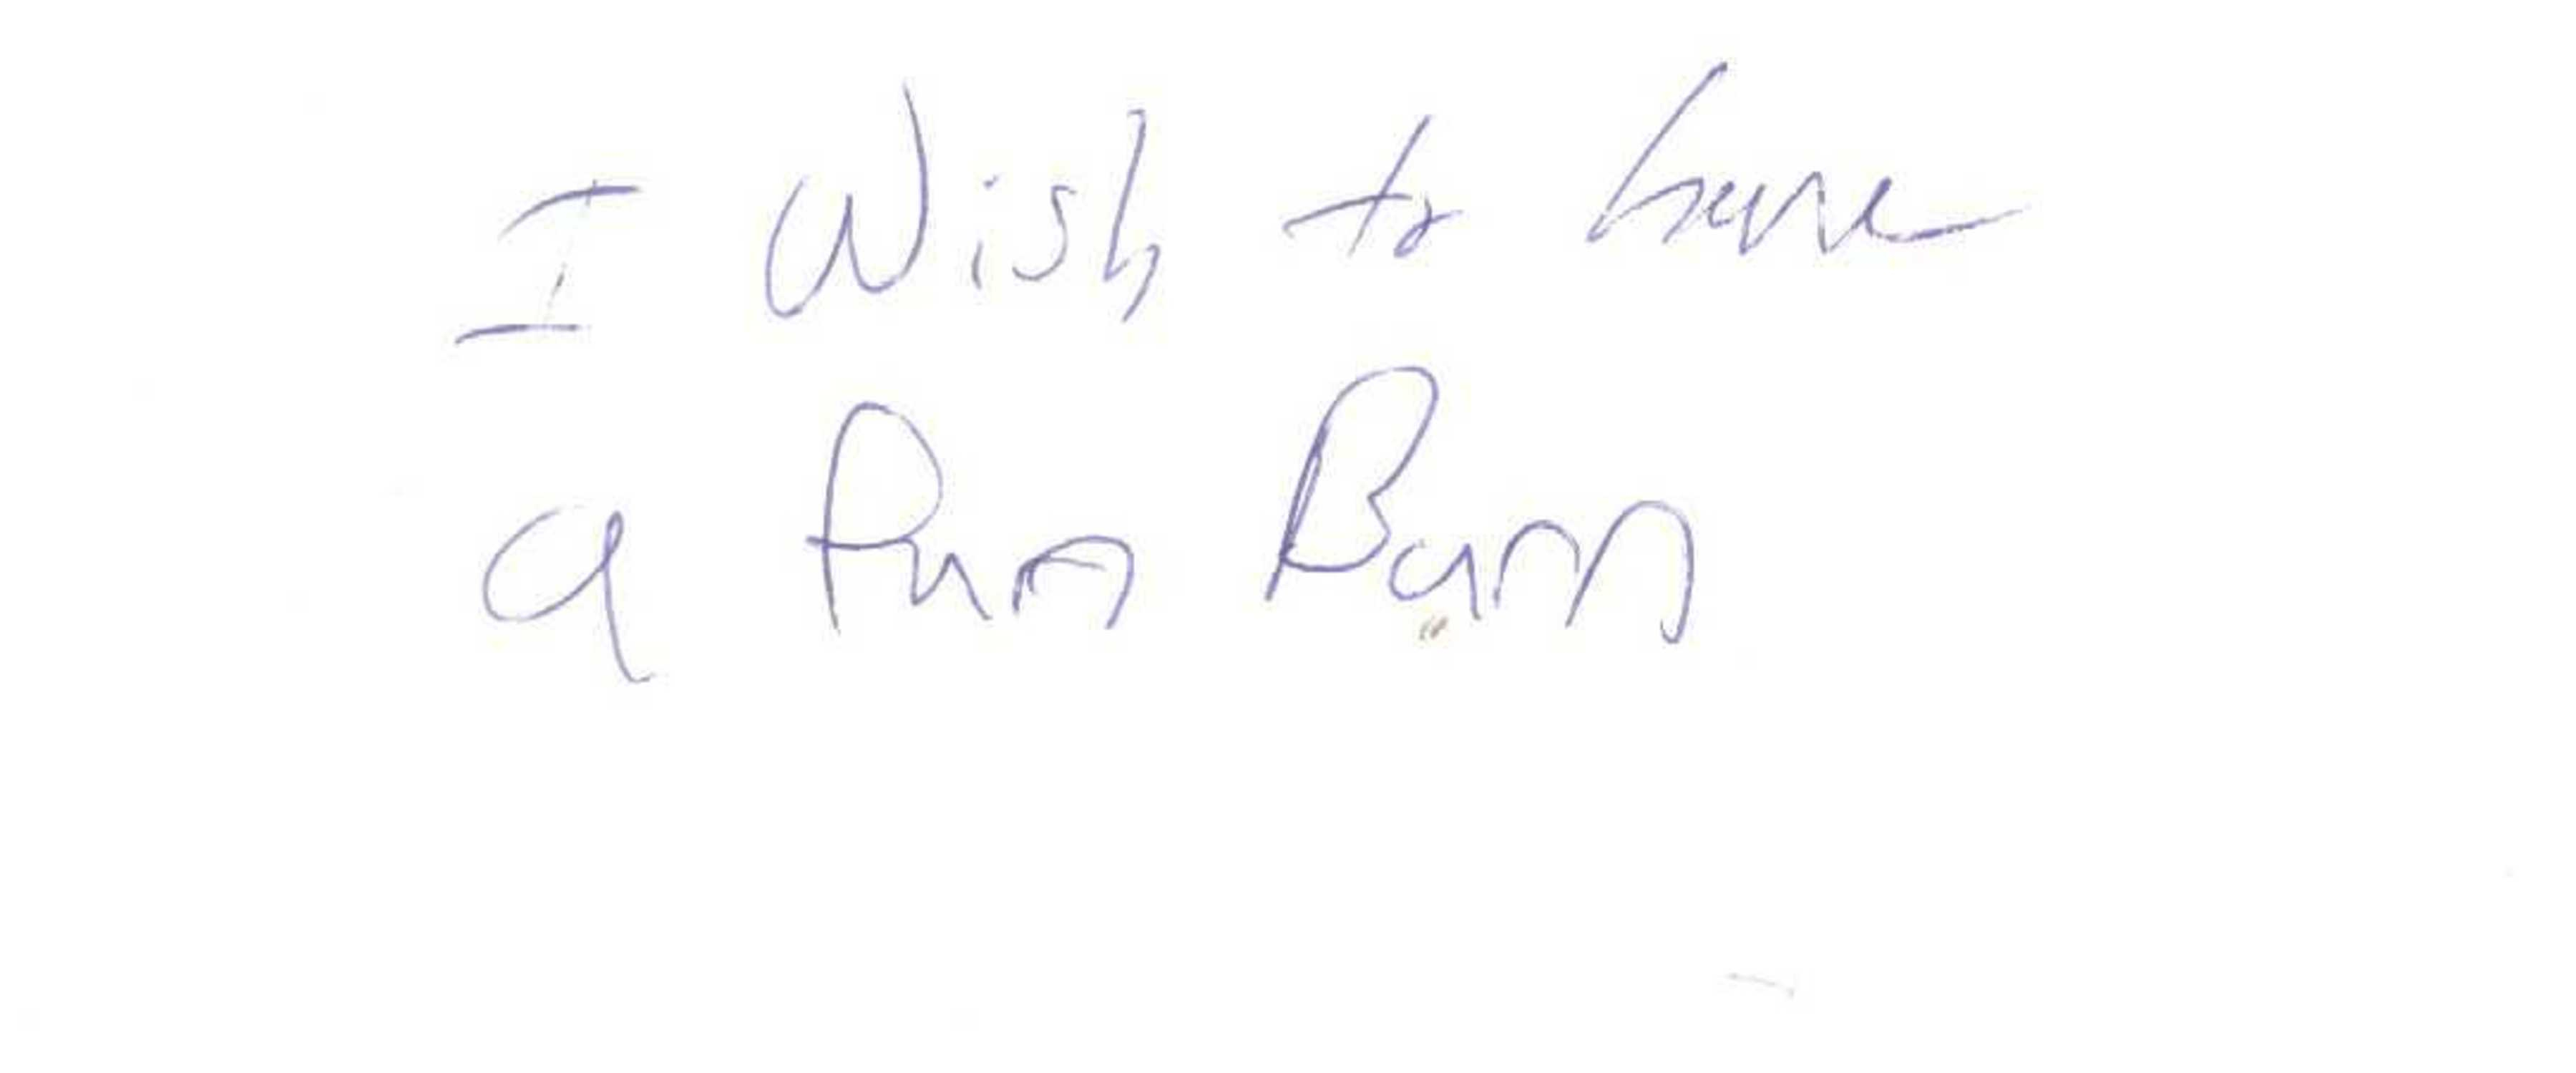 I Wish to have
a fun Barn